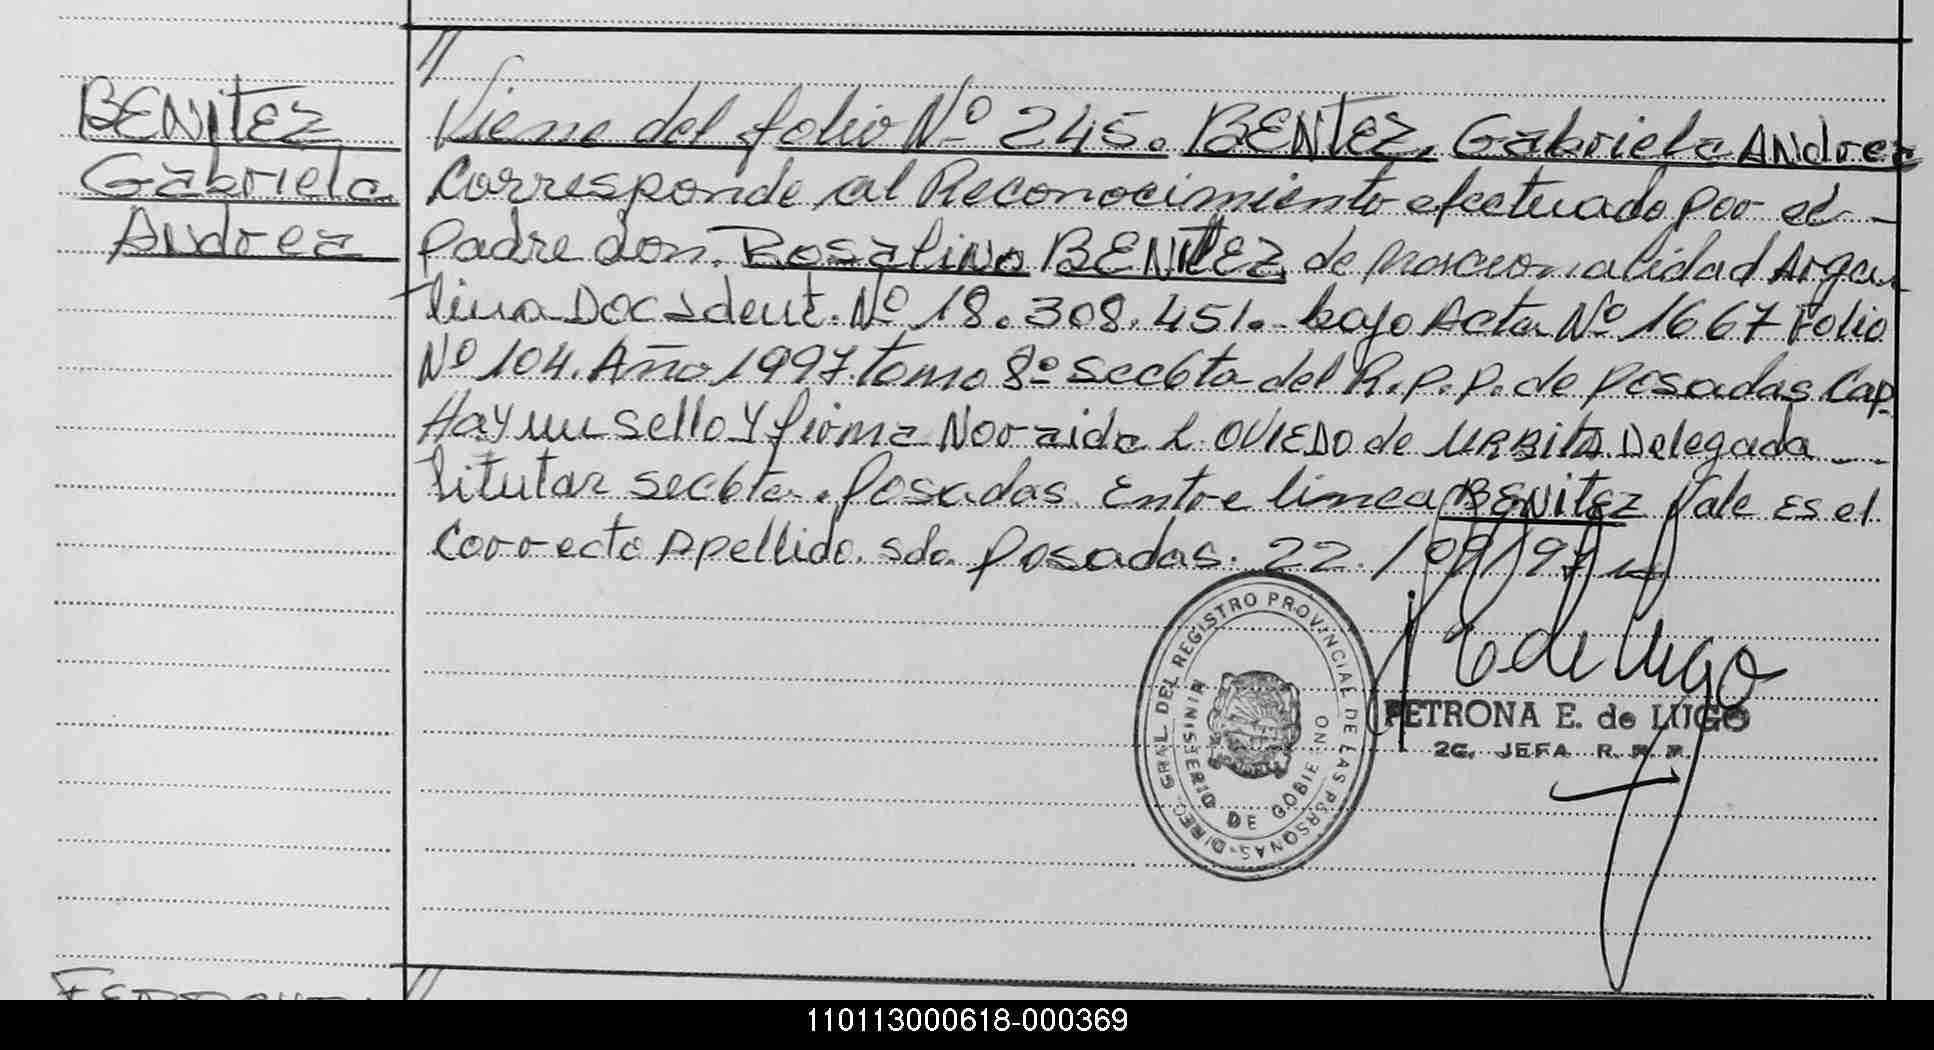 BENITEZ
Gabriela
Andrea
//
Viene del folio Nº 245. BENTEZ, Gabriela Andrea
Corresponde al Reconocimiento efectuado por el -
padre don. Rosalino BENITEZ de nacionalidad Argen
tina Doc Ident. Nº 18.308.451. bajo Acta Nº 1667 Folio
Nº 104. Año 1997. tomo 8º Secc 6ta del R.P.P. de Posadas Cap.
Hay un sello y firma Noraida L. OVIEDO de URBITA Delegada
titular secc 6ta. Posadas. Entre linea BENITEZ Vale Es el
Correcto Apellido. Sdo. Posadas. 22./09/97
DIREC. GRAL. DEL REGISTRO PROVINCIAL DE LAS PERSONAS
MINISTERIO DE GOBIERNO
PETRONA E. de LUGO
2C. JEFA R. P. P.
//
110113000618-000369